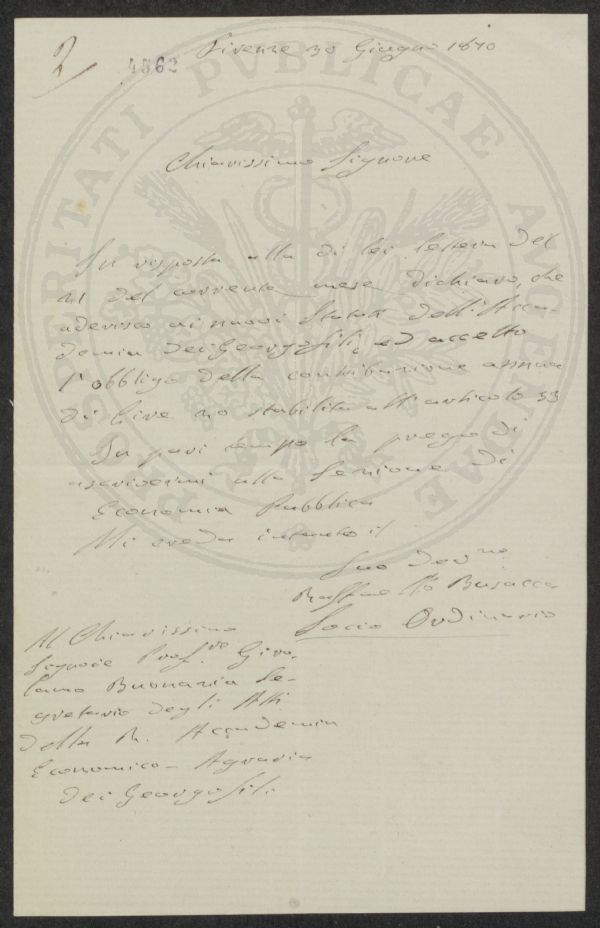 2
4562
Firenze 30 Giugno 1870
PROSPERITATI PVBLICAE AVGENDAE
Chiarissimo Signore
In risposta alla di lei lettera del
21 del corrente mese dichiaro, che
aderisco ai nuovi Statuti dell'Acca-
demia dei Georgofili, ed accetto
l'obbligo della contribuzione annua
di Lire 20 stabilita all'articolo 33
In pari tempo la prego di
ascrivermi alla Sezione di
Economia Pubblica
Mi creda intanto il
Suo Dev.mo
Raffaello Busacca
Socio Ordinario
Al Chiarissimo
Signore Prof.re Giro-
lamo Buonazia Se-
gretario degli Atti
della R. Accademia
Economico-Agraria
dei Georgofili